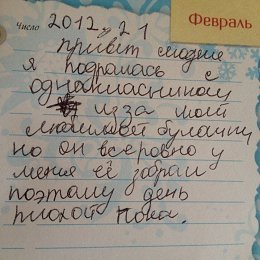 Число 2012 21
Февраль
привет людие
я подралась с
однакласником
из за моей
любимвей булачки
но он всеровно у
меня её забрал
поэтаму день
плохой пока.